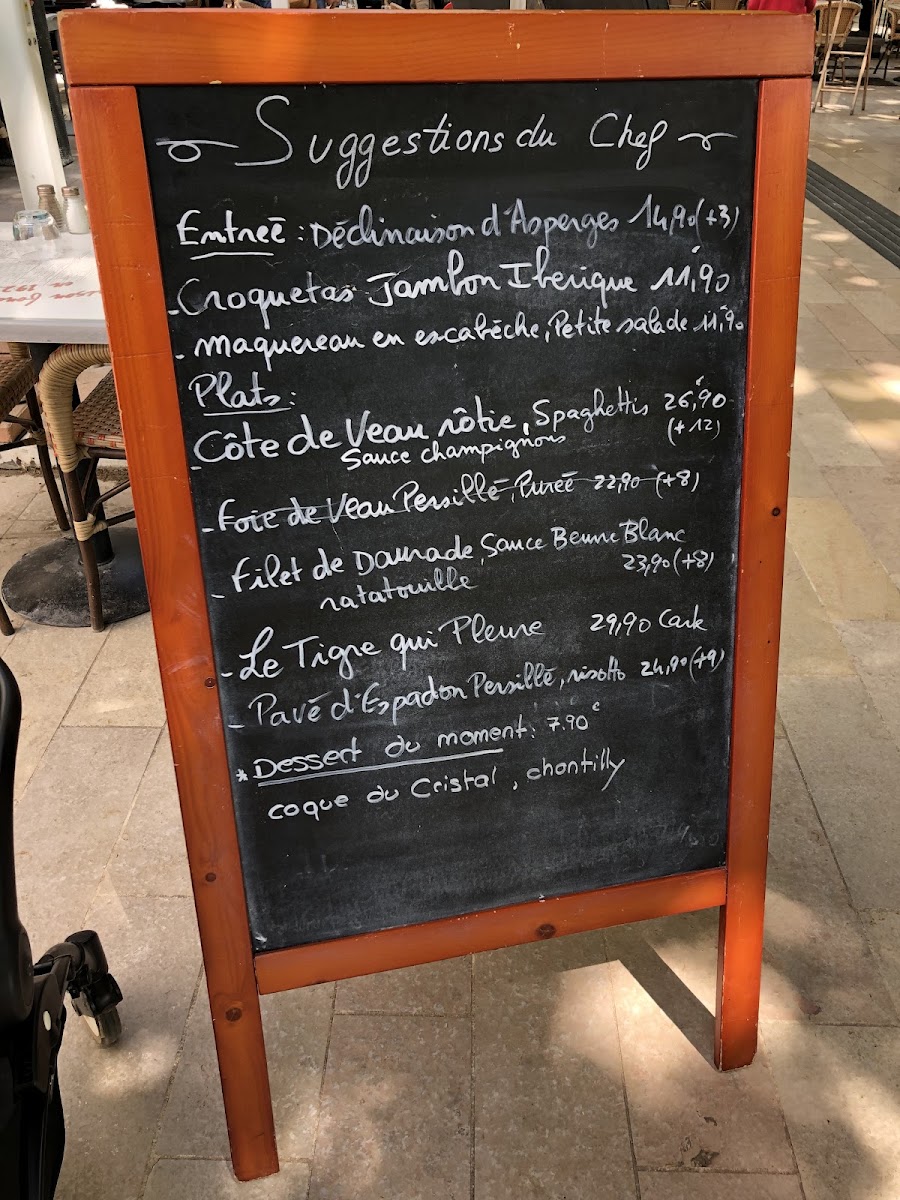 Suggestions du Chef
Entreé : Déclinaison d'Asperges 14,90 (+3)
- Croquetas Jambon Iberique 11,90€
- Maquereau en escabèche, Petite salade 11,90
Plats :
- Côte de Veau rôtie, Spaghettis 26,90€
Sauce champignons (+12)
- Foie de Veau Persillé, Pureé 22,90 (+8)
- Filet de Daurade, Sauce Beurre Blanc
ratatouille 23,90 (+8)
- Le Tigre qui Pleure 29,90 Carte
- Pavé d'Espadon Persillé, risotto 24,90 (+9)
* Dessert du moment : 7.90€
coque du Cristal, chantilly